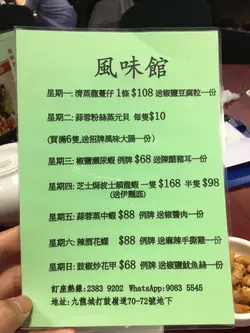 風味館
星期一: 清蒸龍躉仔 1條 $108 送椒鹽豆腐粒一份
星期二: 蒜蓉粉絲蒸元貝 每隻$10
(買滿6隻,送招牌風味大腸一份)
星期三: 椒鹽瀨尿蝦 例牌 $68 送陳醋豬耳一份
星期四: 芝士焗波士頓龍蝦 一隻 $168 半隻 $98
(送伊麵底)
星期五: 蒜蓉蒸中蝦 $88 例牌 送椒醬肉一份
星期六: 辣酒花螺 $88 例牌 送麻辣手撕雞一份
星期日: 豉椒炒花甲 $68 例牌 送椒鹽魷魚絲一份
訂座熱線: 2383 9202 WhatsApp: 9083 5545
地址: 九龍城打鼓嶺道70-72號地下